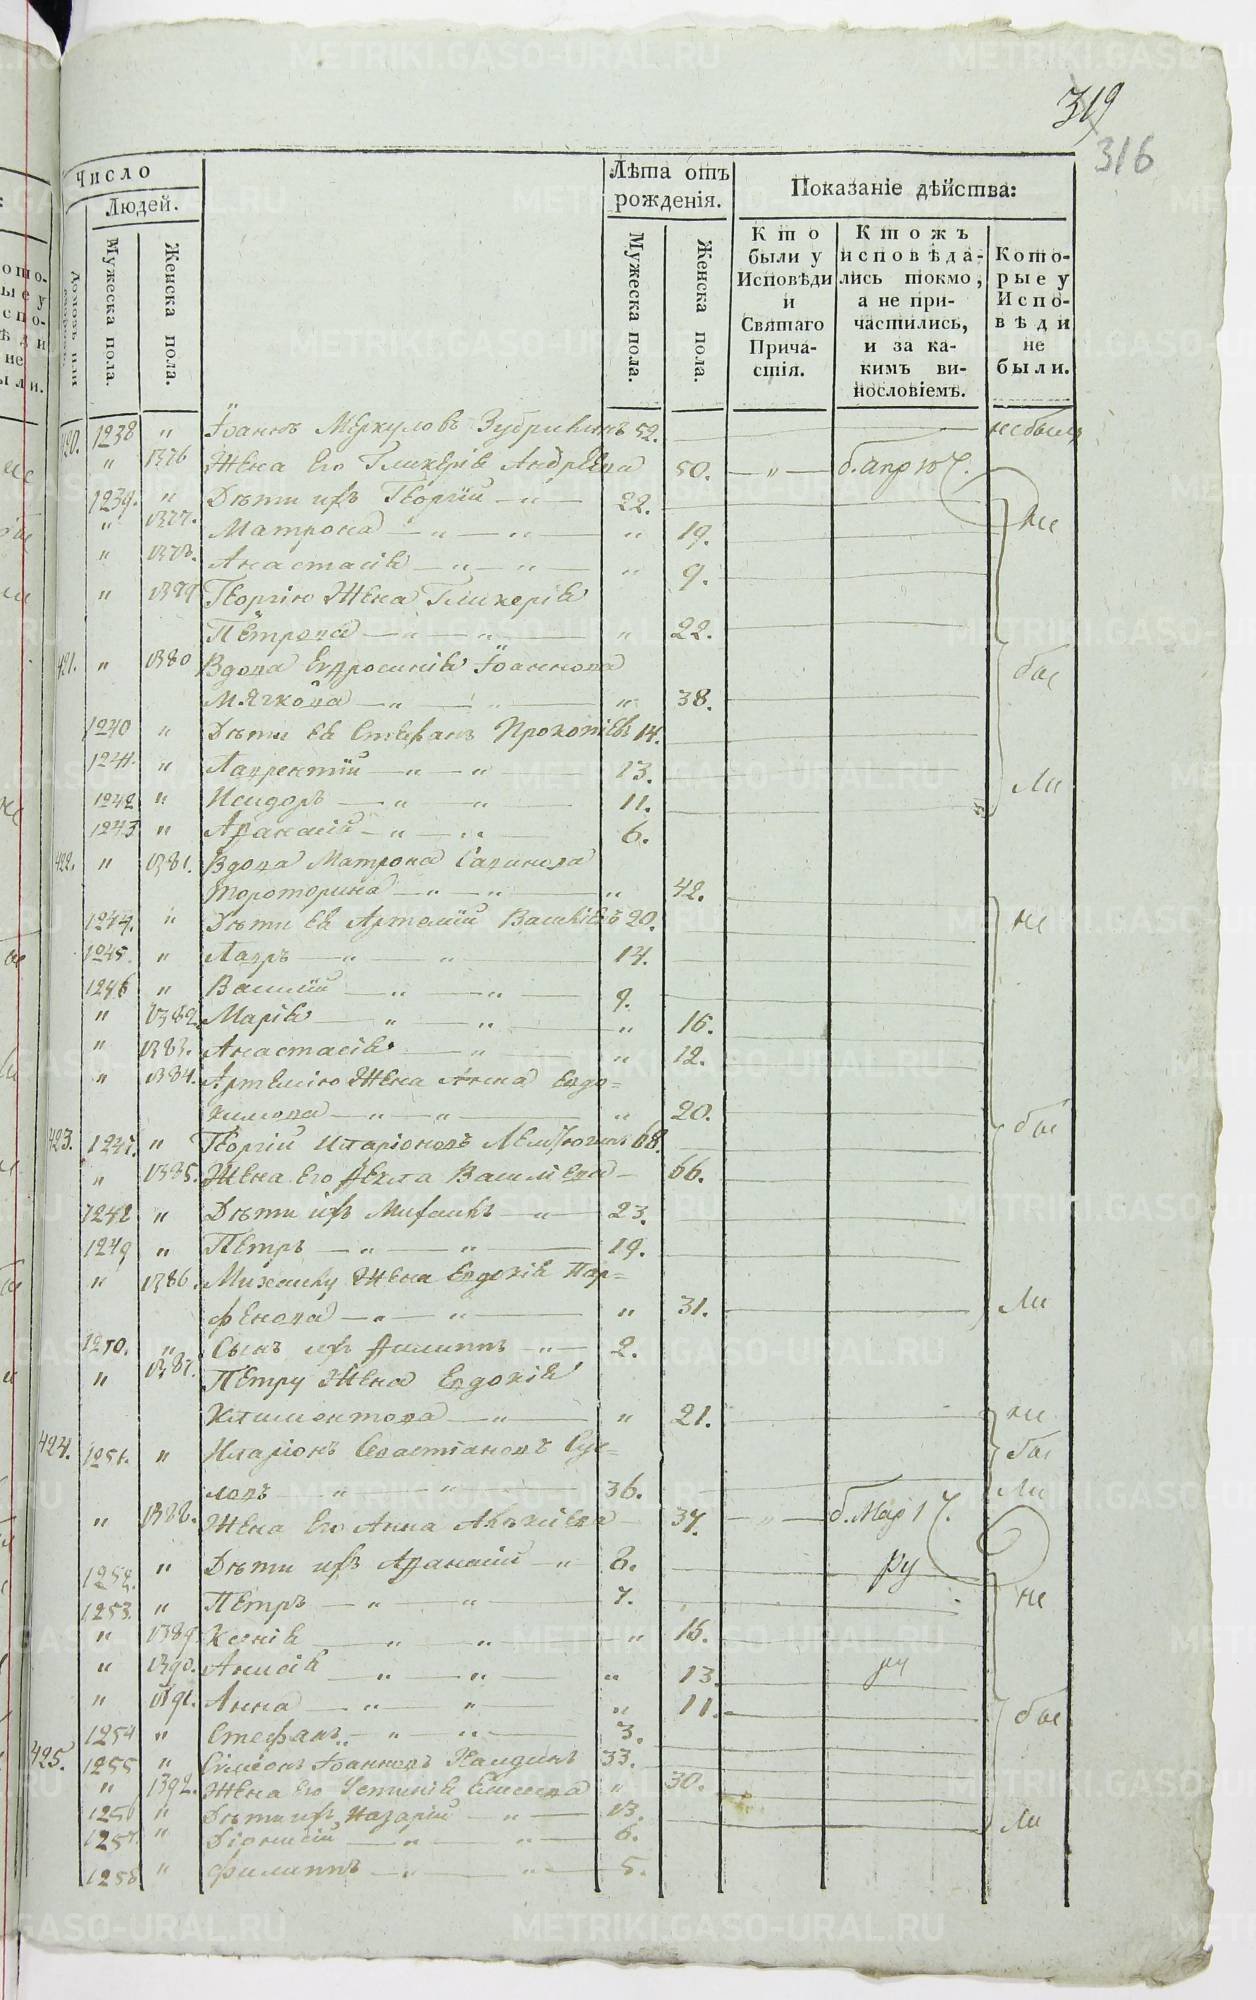 319
316
Число
Людей.
Домовъ или
Мужеска пола.
Женска пола.
Лѣта отъ
рожденія.
Мужеска пола.
Женска пола.
Показаніе дѣйства:
Кто
были у
Исповѣди
и
Святаго
Прича-
стія.
Ктожъ
исповѣда-
лись токмо,
а не при-
частились,
и за ка-
кимъ ви-
нословіемъ.
Кото-
рые у
Испо-
вѣди
не
были.
420. 1238 " Іоаннъ Меркуловъ Зубрикинъ 52. небылъ
" 1376 Жена Его Гликерія Андрѣева 50. — " —
1239. " Дѣти ихъ Георгій — " — 22.
" 1377. Матрона — " — " — " 19. не
" 1378. Анастасія — " — " — " 9.
" 1379 Георгію Жена Гликерія
Петрова — " — " — " 22.
421. " 1380 Вдова Евфросинія Іоаннова бы
Мягкова — " — " 38.
1240 " Дѣти Ея Стефанъ Прокопіевъ 14.
1241. " Лаврентій — " — " — 13.
1242 " Исидоръ — " — " — 11. ли
1243 " Афанасій — " — " — 6.
422. " 1381. Вдова Матрона Саввинова
Тороторина — " — " — " 42.
1244. " Дѣти Ея Артемій Васильевъ 20. не
1245. " Лавръ — " — " — 14.
1246 " Василій — " — " — 9.
" 1382. Марія — " — " — " 16.
" 1383. Анастасія — " — " 12.
" 1384. Артемію Жена Анна Евдо=
кимова — " — " — " 20.
423. 1247. " Георгій Иларіоновъ 68. бы
" 1385. Жена Его Фекла Васильева — 66.
1248 " Дѣти ихъ Михаилъ — " — 23.
1249 " Петръ — " — " — 19.
" 1386. Михаилу Жена Евдокія Пар=
фенова — " — " — " 31. ли
1250. " Сынъ ихъ Филиппъ — " — 2.
" 1387. Петру Жена Евдокія
Климентова — " — " 21. не
424. 1251. " Иларіонъ Севастіановъ Сус= бы
ловъ — " — " — 36. ли
" 1388. Жена Его Анна Алексіева — 37. — " — б. Мар 17.
1252. " Дѣти ихъ Афанасій — " 8.
1253. " Петръ — " — " — 7. не
" 1389. Ксенія — " — " — " 15.
" 1390. Анисія — " — " — " 13.
" 1391. Анна — " — " — " 11.
1254 " Стефанъ — " — " — 3. бы
425. 1255 " Симеонъ Іоанновъ 33.
" 1392. Жена Его Устинія " 30.
1256 " Дѣти ихъ Назарій — " — 13. ли
1257. " Діонисій — " — " — 6.
1258 " Филиппъ — " — " — 5.
METRIKI.GASO-URAL.RU